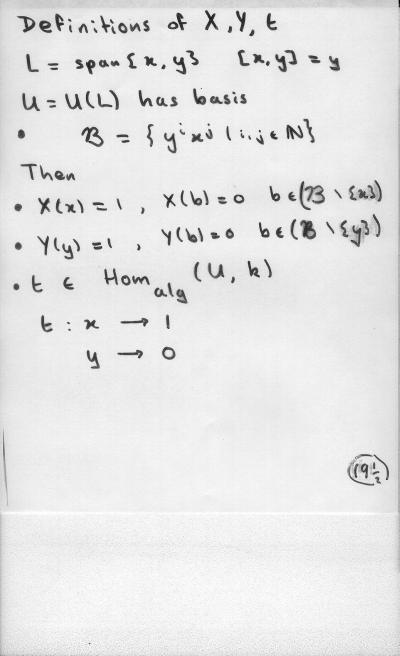 Definitions of X, Y, t
L = span {x, y} [x, y] = y
U = U(L) has basis
• B = {yⁱxʲ | i, j ∈ ℕ}
Then
• X(x) = 1, X(b) = 0 b ∈ (B \ {x})
• Y(y) = 1, Y(b) = 0 b ∈ (B \ {y})
• t ∈ Hom_alg (U, k)
t : x → 1
y → 0
19½